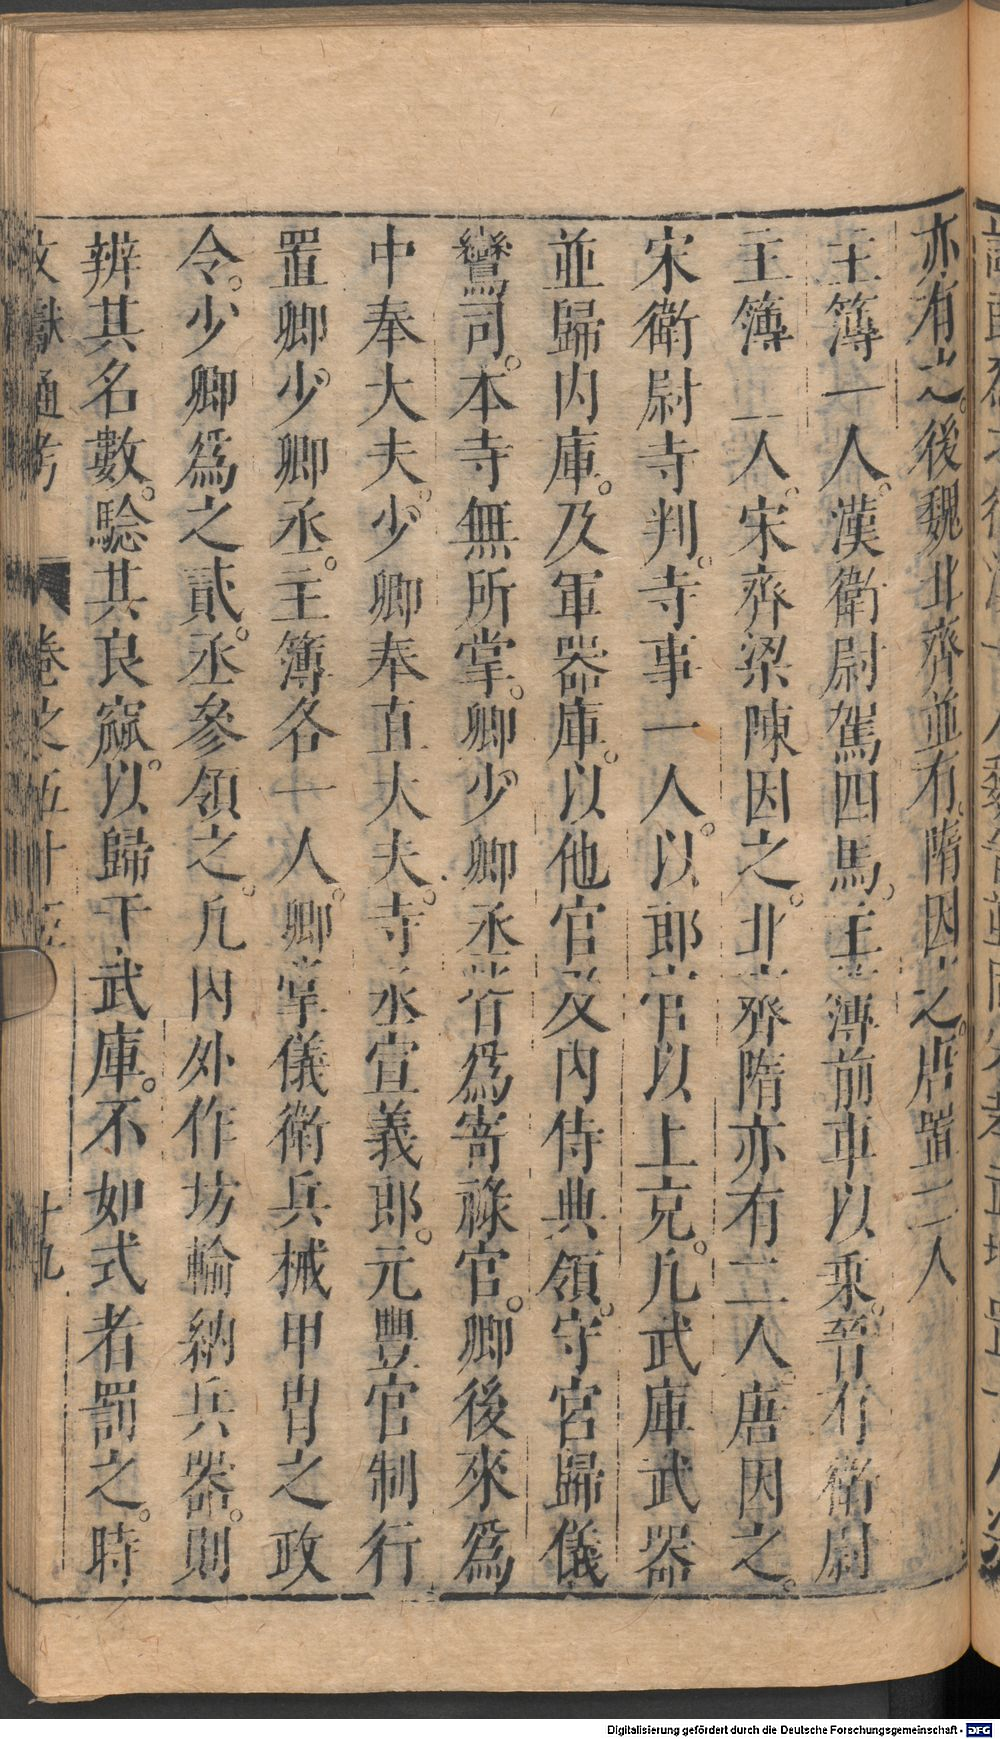 亦有之。後魏北齊並有。隋因之。唐置二人
主簿一人。漢衛尉駕四馬。主簿前車以乘。晉有衛尉
主簿二人。宋齊梁陳因之。北齊隋亦有二人。唐因之。
宋衛尉寺判。寺事一人。以郎官以上充。凡武庫武器
並歸内庫。及軍器庫。以他官及内侍典領。守宮歸儀
鸞司。本寺無所掌。卿少卿丞皆為寄祿官。卿後來為
中奉大夫。少卿奉直大夫。寺丞宣義郎。元豐官制行
置卿少卿丞。主簿各一人。卿掌儀衛兵械甲冑之政
令。少卿為之貳。丞參領之。凡内外作坊輸納兵器。則
辨其名數。驗其良窳。以歸于武庫。不如式者罰之。時
文獻通考 卷之五十五 十九
Digitalisierung gefördert durch die Deutsche Forschungsgemeinschaft - DFG